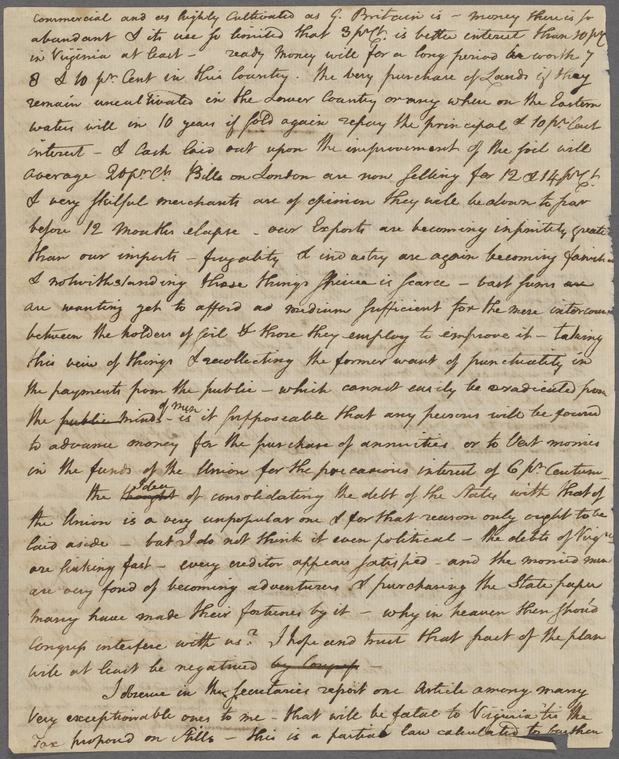 commercial and as highly cultivated as G. Britain is - money there is so
abundant & its use so limited that 3 pr Ct. is better interest than 10 pr Ct
in Virginia at least - ready money will for a long period be worth 7
8 & 10 pr Cent in this Country. the very purchase of Lands if they
remain uncultivated in the Lower Country or any where on the Eastern
waters will in 10 years if sold again repay the principal & 10 pr Cent
interest - & Cash laid out upon the improvement of the soil will
average 20 pr Ct. Bills on London are now selling for 12 & 14 pr Ct.
& very skilful merchants are of opinion they will be down to par
before 12 Months elapse - our Exports are becoming infinitely greater
than our imports - frugality & industry are again becoming
& notwithstanding these things Specie is scarce - vast sums are
are wanting yet to afford a medium sufficient for the mere intercourse
between the holders of soil & those they employ to improve it - taking
this view of things & recollecting the former want of punctuality in
the payments from the public - which cannot easily be eradicated from
the public minds of men - is it supposeable that any persons will be found
to advance money for the purchase of annuities or to vest monies
in the funds of the Union for the precarious interest of 6 pr Centum
the thought Idea of consolidating the debt of the States with that of
the Union is a very unpopular one & for that reason only ought to be
laid aside - but I do not think it even political - the debts of Virga
are sinking fast - every creditor appears satisfied - and the monied men
are very fond of becoming adventurers & purchasing the State paper
many have made their fortunes by it - why in heaven then shou'd
Congress interfere with us? I hope and trust that part of the plan
will at least be negatived by Congress -
I observe in the Secretaries report one Article among many
very exceptionable ones to me - that will be fatal to Virginia 'tis the
Tax proposed on Stills - this is a partial law calculated to burthen